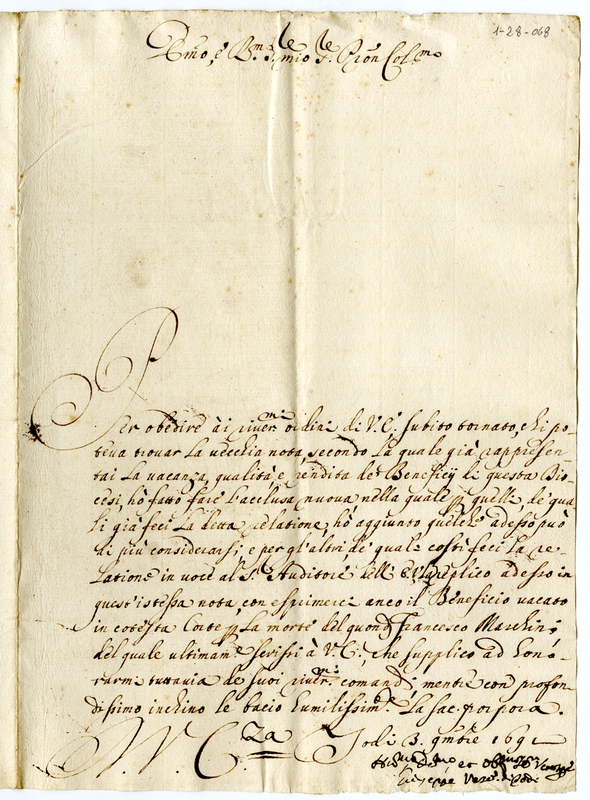 1-28-068
Em̃o, e Rm̃o Sig.re mio Sig.re Prõn Col.mo
Per obedire à i river.mi ordini di V. E. subito tornato, e hi po-
teva trovar la vecchia nota, secondo la quale già rappresen
tai la vacanza, qualità, e rendita de' Beneficij di questa Dio-
cesi, hò fatto fare l'acclusa nuova nella quale p quelli de' qua
li già feci la detta relatione, hò aggiunto quelch' adesso può
di più considerarsi, e per gl'altri de' quali costì feci la re-
latione in voce al S.r Auditore dell' E. V. la replico adesso in
quest'istessa nota, con esprimerci anco il Beneficio vacato
in cotesta Corte p la morte del quond. Francesco Marchini,
del quale ultimam.te scrissi à V. E., che supplico ad hono-
rarmi tuttavia de suoi river.mi comandi, mentre con profon-
dissimo inchino le bacio humilissim.te la sac. porpora.
Di V. E.za
Todi 3. 9mbre 1691
Giuseppe Vesc.o di Todi